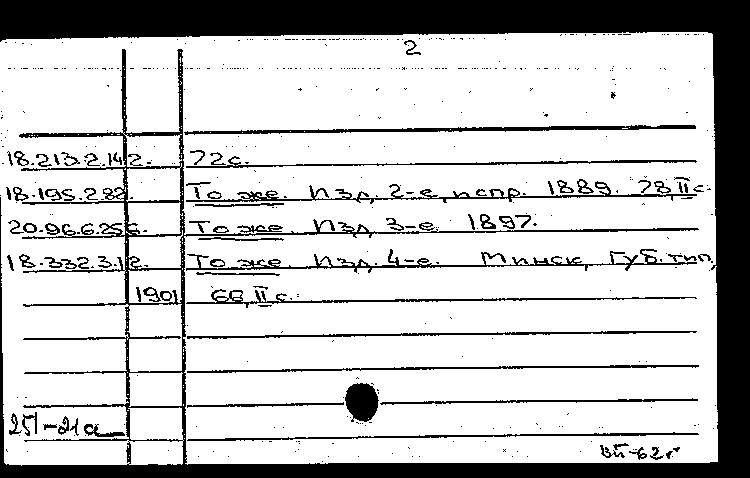 2
18.213.2.142. 72с.
18.195.2.82. То же. Изд. 2-е, испр. 1889. 78, II с.
20.96.6.256. То же Изд. 3-е 1897.
18.332.3.12. То же. Изд. 4-е. Минск, Губ. тип.,
1901 66, II с.
251-21а